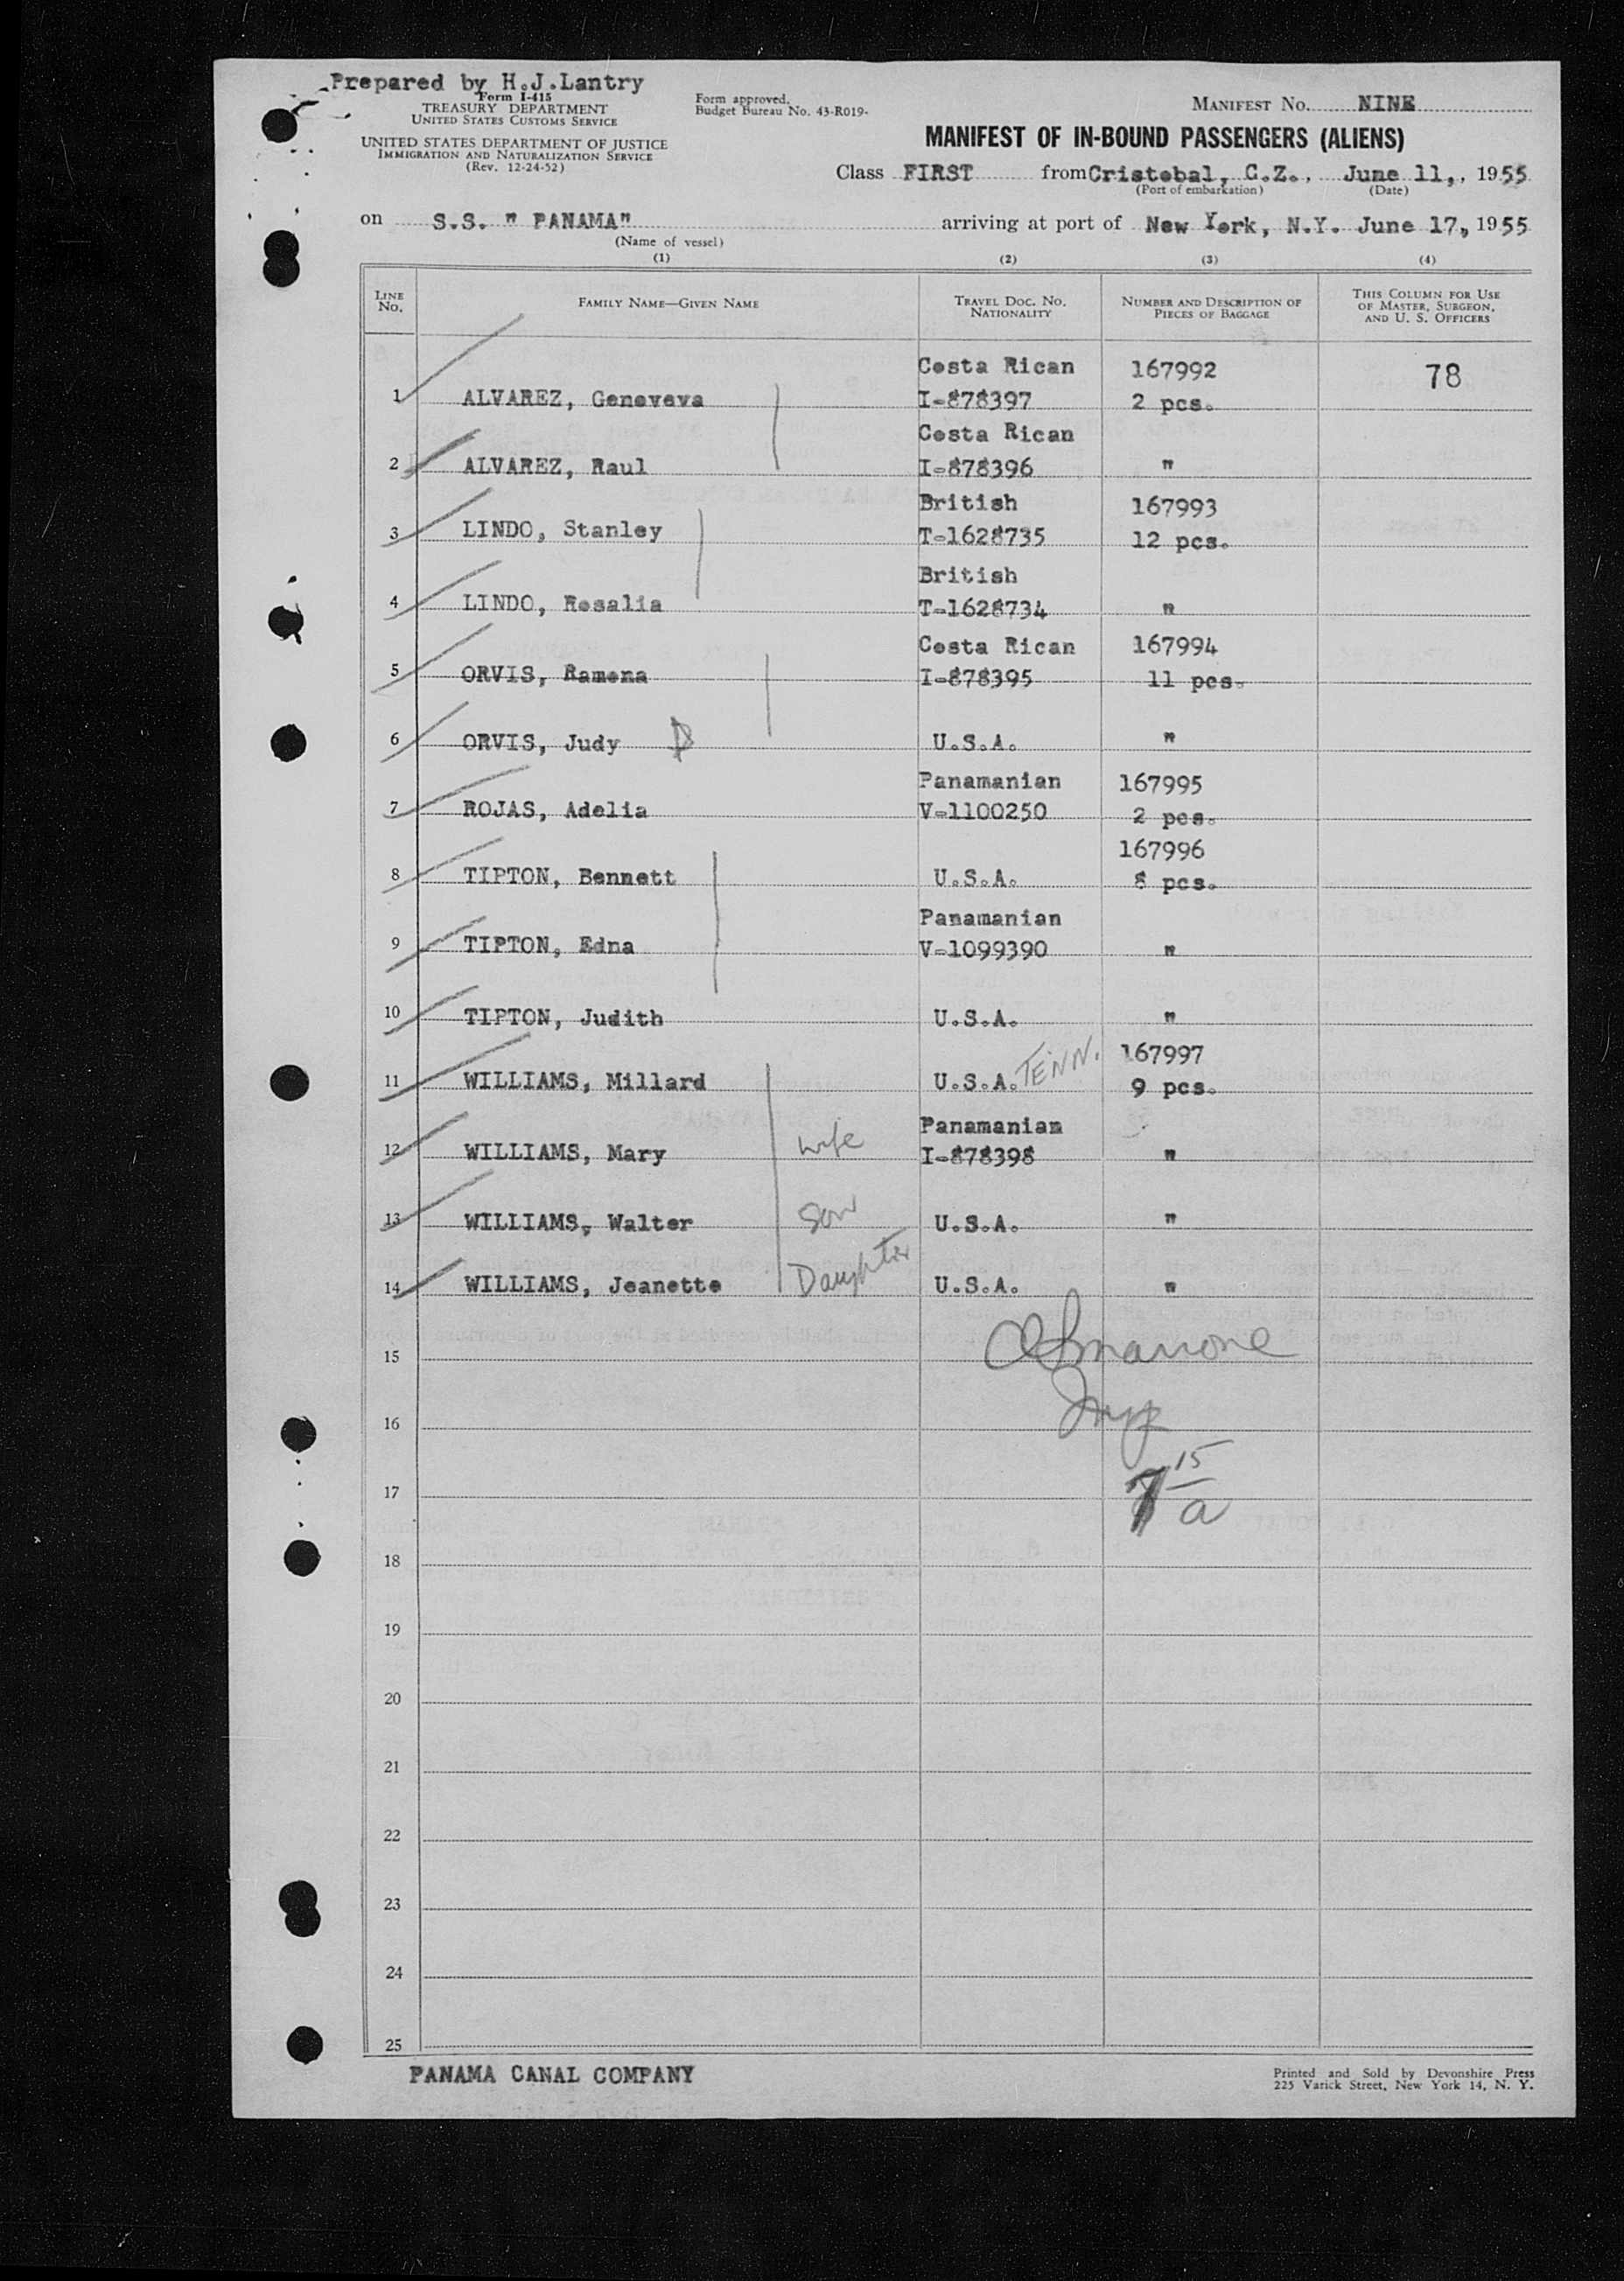 Prepared by H.J.Lantry
Form I-415
TREASURY DEPARTMENT
UNITED STATES CUSTOMS SERVICE
UNITED STATES DEPARTMENT OF JUSTICE
IMMIGRATION AND NATURALIZATION SERVICE
(Rev. 12-24-52)
Form approved.
Budget Bureau No. 43-R019-
MANIFEST NO. NINE
MANIFEST OF IN-BOUND PASSENGERS (ALIENS)
Class FIRST from Cristobal, C.Z., June 11,, 1955
(Port of embarkation) (Date)
on S.S. " PANAMA" arriving at port of New York, N.Y. June 17, 1955
(Name of vessel)
(1) (2) (3) (4)
LINE NO. FAMILY NAME—GIVEN NAME TRAVEL DOC. NO. NATIONALITY NUMBER AND DESCRIPTION OF PIECES OF BAGGAGE THIS COLUMN FOR USE OF MASTER, SURGEON, AND U. S. OFFICERS
Costa Rican 167992 78
1 ALVAREZ, Genoveva I-878397 2 pcs.
Costa Rican
2 ALVAREZ, Raul I-878396 "
British 167993
3 LINDO, Stanley T-1628735 12 pcs.
British
4 LINDO, Rosalia T-1628734 "
Costa Rican 167994
5 ORVIS, Ramona I-878395 11 pcs.
6 ORVIS, Judy U.S.A. "
Panamanian 167995
7 ROJAS, Adelia V-1100250 2 pcs.
167996
8 TIPTON, Bennett U.S.A. 8 pcs.
Panamanian
9 TIPTON, Edna V-1099390 "
10 TIPTON, Judith U.S.A. "
167997
11 WILLIAMS, Millard U.S.A. TENN. 9 pcs.
Panamanian
12 WILLIAMS, Mary wife I-878398 "
13 WILLIAMS, Walter Son U.S.A. "
14 WILLIAMS, Jeanette Daughter U.S.A. "
15
16
17 7 15 a
18
19
20
21
22
23
24
25
PANAMA CANAL COMPANY
Printed and Sold by Devonshire Press
225 Varick Street, New York 14, N. Y.